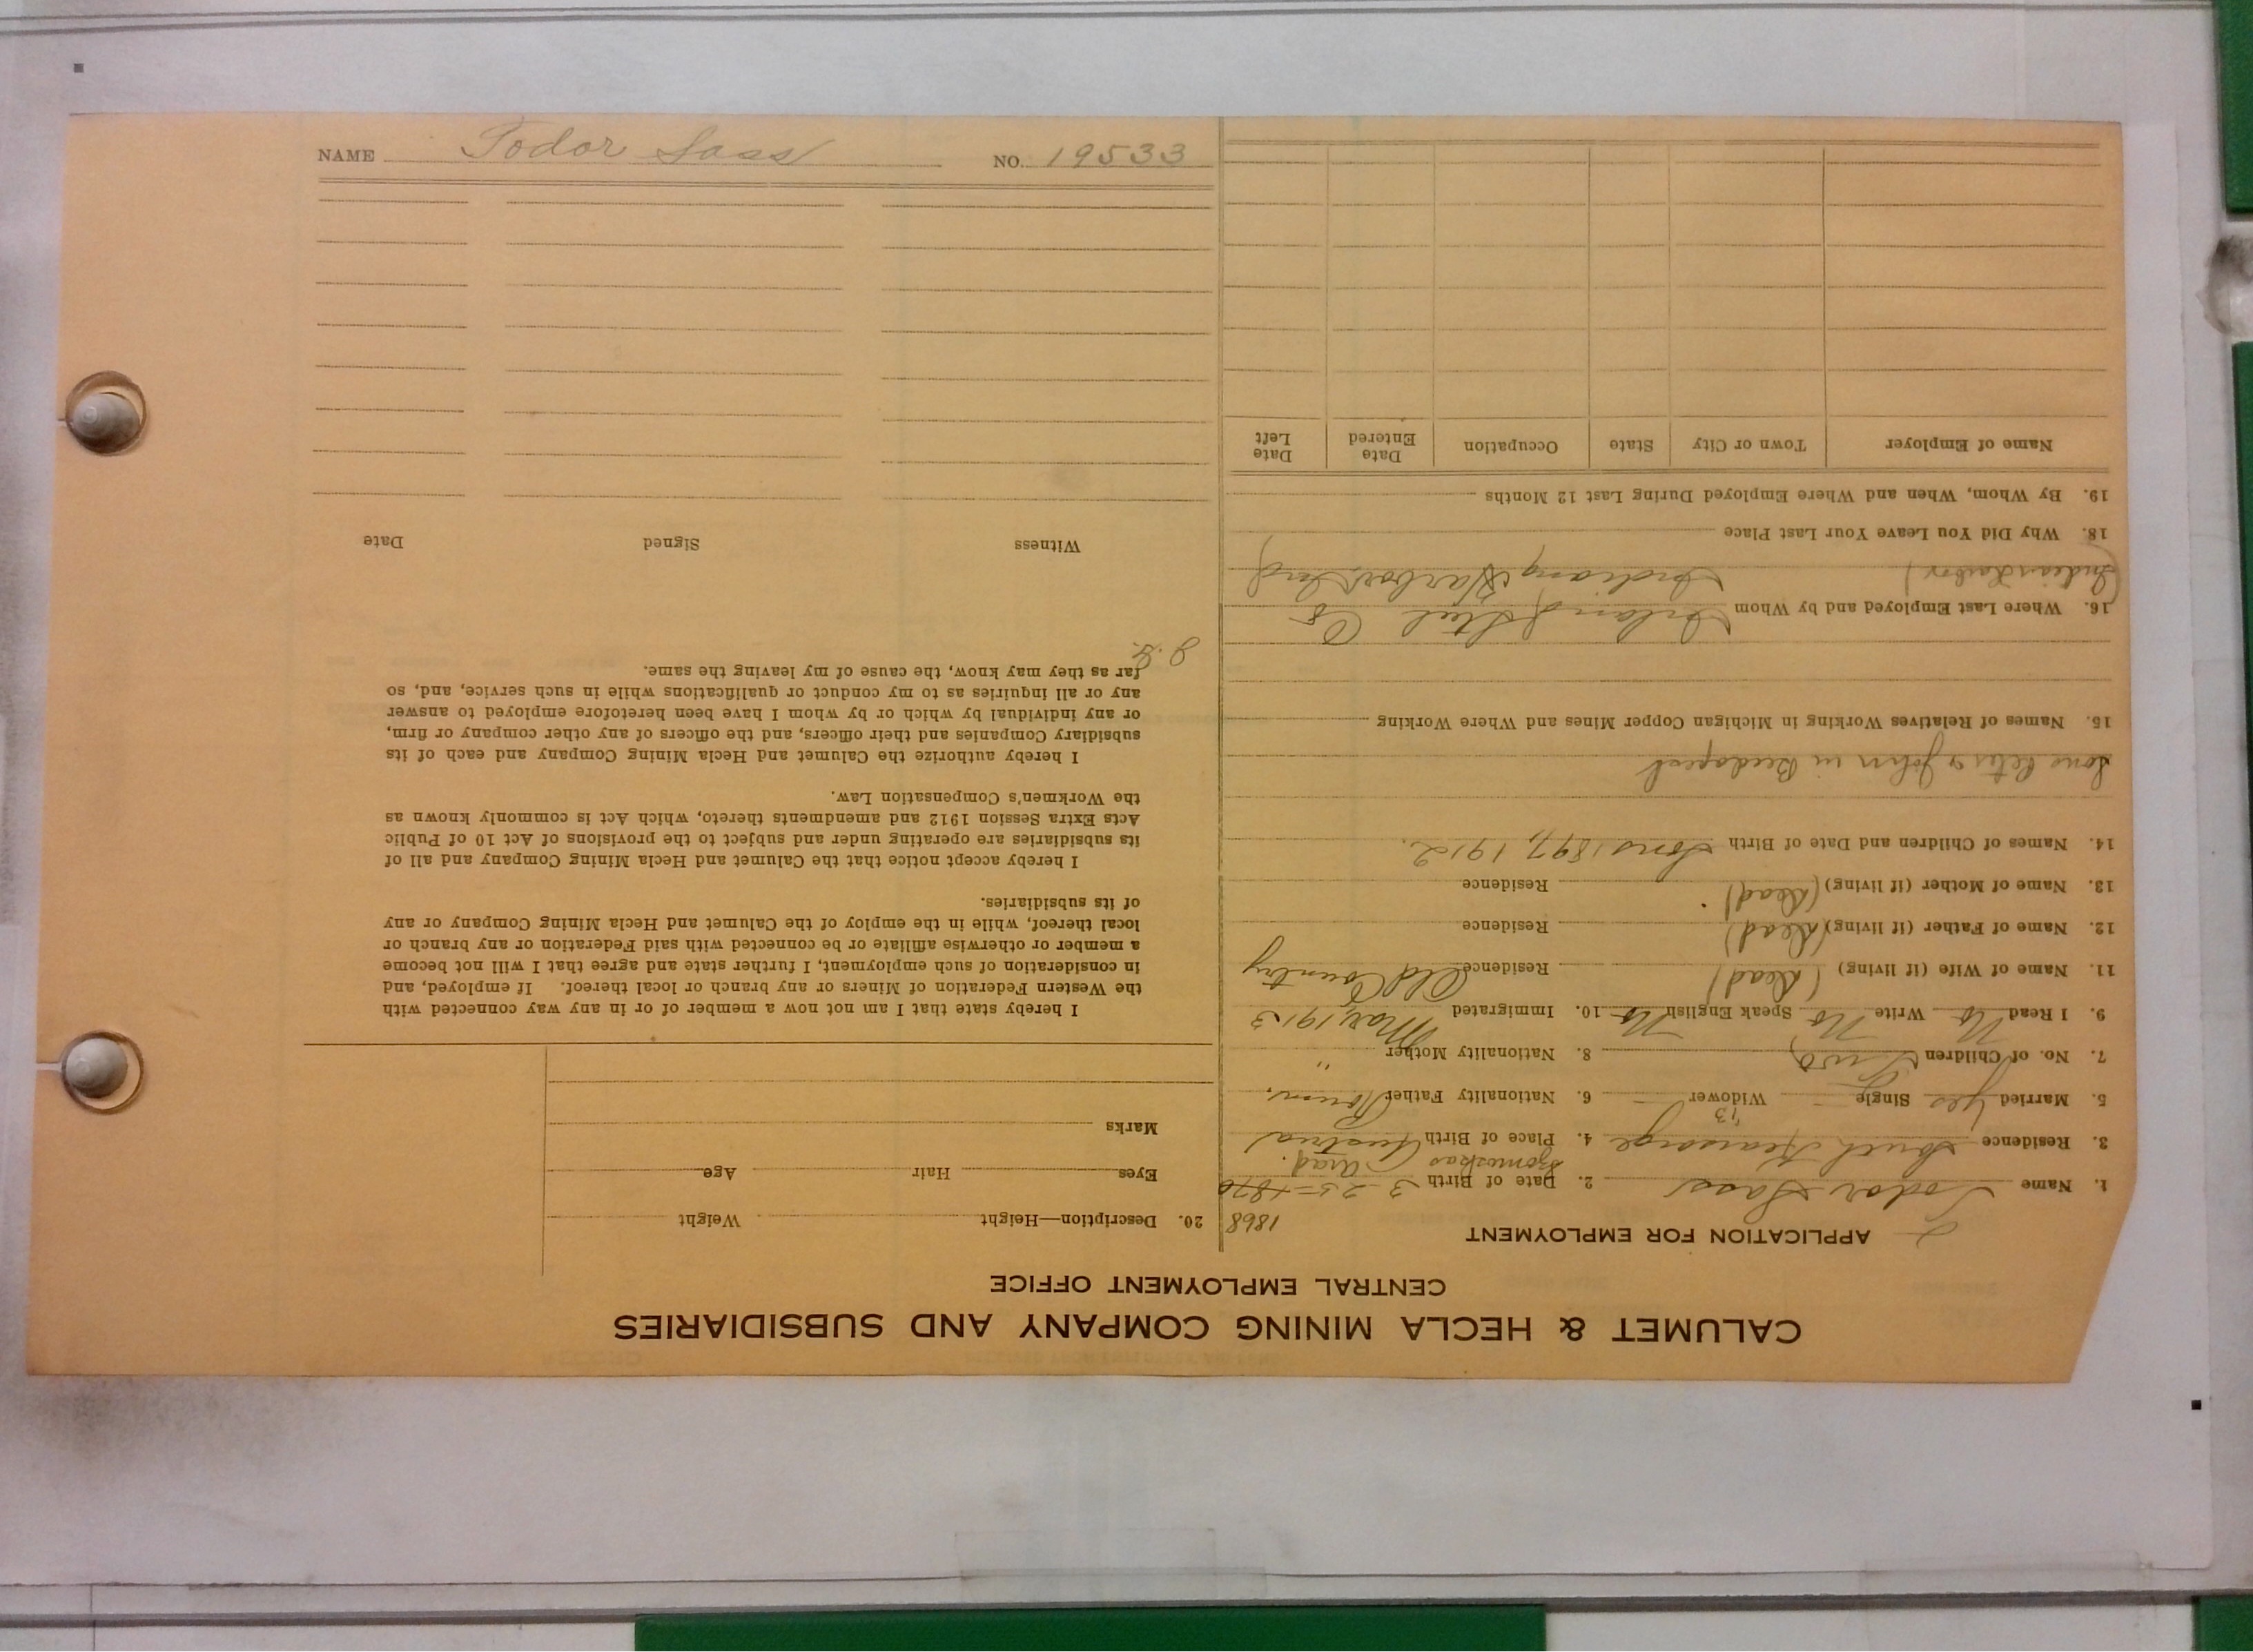 CALUMET & HECLA MINING COMPANY AND SUBSIDIARIES
CENTRAL EMPLOYMENT OFFICE
APPLICATION FOR EMPLOYMENT
1868
1. Name Todor Sass 2. Date of Birth 3-25-1870
Arad.
3. Residence South Kearsarge 4. Place of Birth Austria
'13
5. Married Yes Single — Widower — 6. Nationality Father Roum.
7. No. of Children Two 8. Nationality Mother "
9. I Read No Write No Speak English No 10. Immigrated May, 1913
11. Name of Wife (if living) (Dead) Residence Old Country
12. Name of Father (if living) (Dead) Residence
13. Name of Mother (if living) (Dead) Residence
14. Names of Children and Date of Birth Sons 1897, 1912.
Sons Peter & John in Budapest
15. Names of Relatives Working in Michigan Copper Mines and Where Working
16. Where Last Employed and by Whom Inland Steel Co
(Indian Harbor) Indiana Harbor, Ind
18. Why Did You Leave Your Last Place
19. By Whom, When and Where Employed During Last 12 Months
Name of Employer Town or City State Occupation Date Entered Date Left
20. Description—Height Weight
Eyes Hair Age
Marks
I hereby state that I am not now a member of or in any way connected with
the Western Federation of Miners or any branch or local thereof. If employed, and
in consideration of such employment, I further state and agree that I will not become
a member or otherwise affiliate or be connected with said Federation or any branch or
local thereof, while in the employ of the Calumet and Hecla Mining Company or any
of its subsidiaries.
I hereby accept notice that the Calumet and Hecla Mining Company and all of
its subsidiaries are operating under and subject to the provisions of Act 10 of Public
Acts Extra Session 1912 and amendments thereto, which Act is commonly known as
the Workmen's Compensation Law.
I hereby authorize the Calumet and Hecla Mining Company and each of its
subsidiary Companies and their officers, and the officers of any other company or firm,
or any individual by which or by whom I have been heretofore employed to answer
any or all inquiries as to my conduct or qualifications while in such service, and, so
far as they may know, the cause of my leaving the same.
Witness Signed Date
NAME Todor Sass NO. 19533